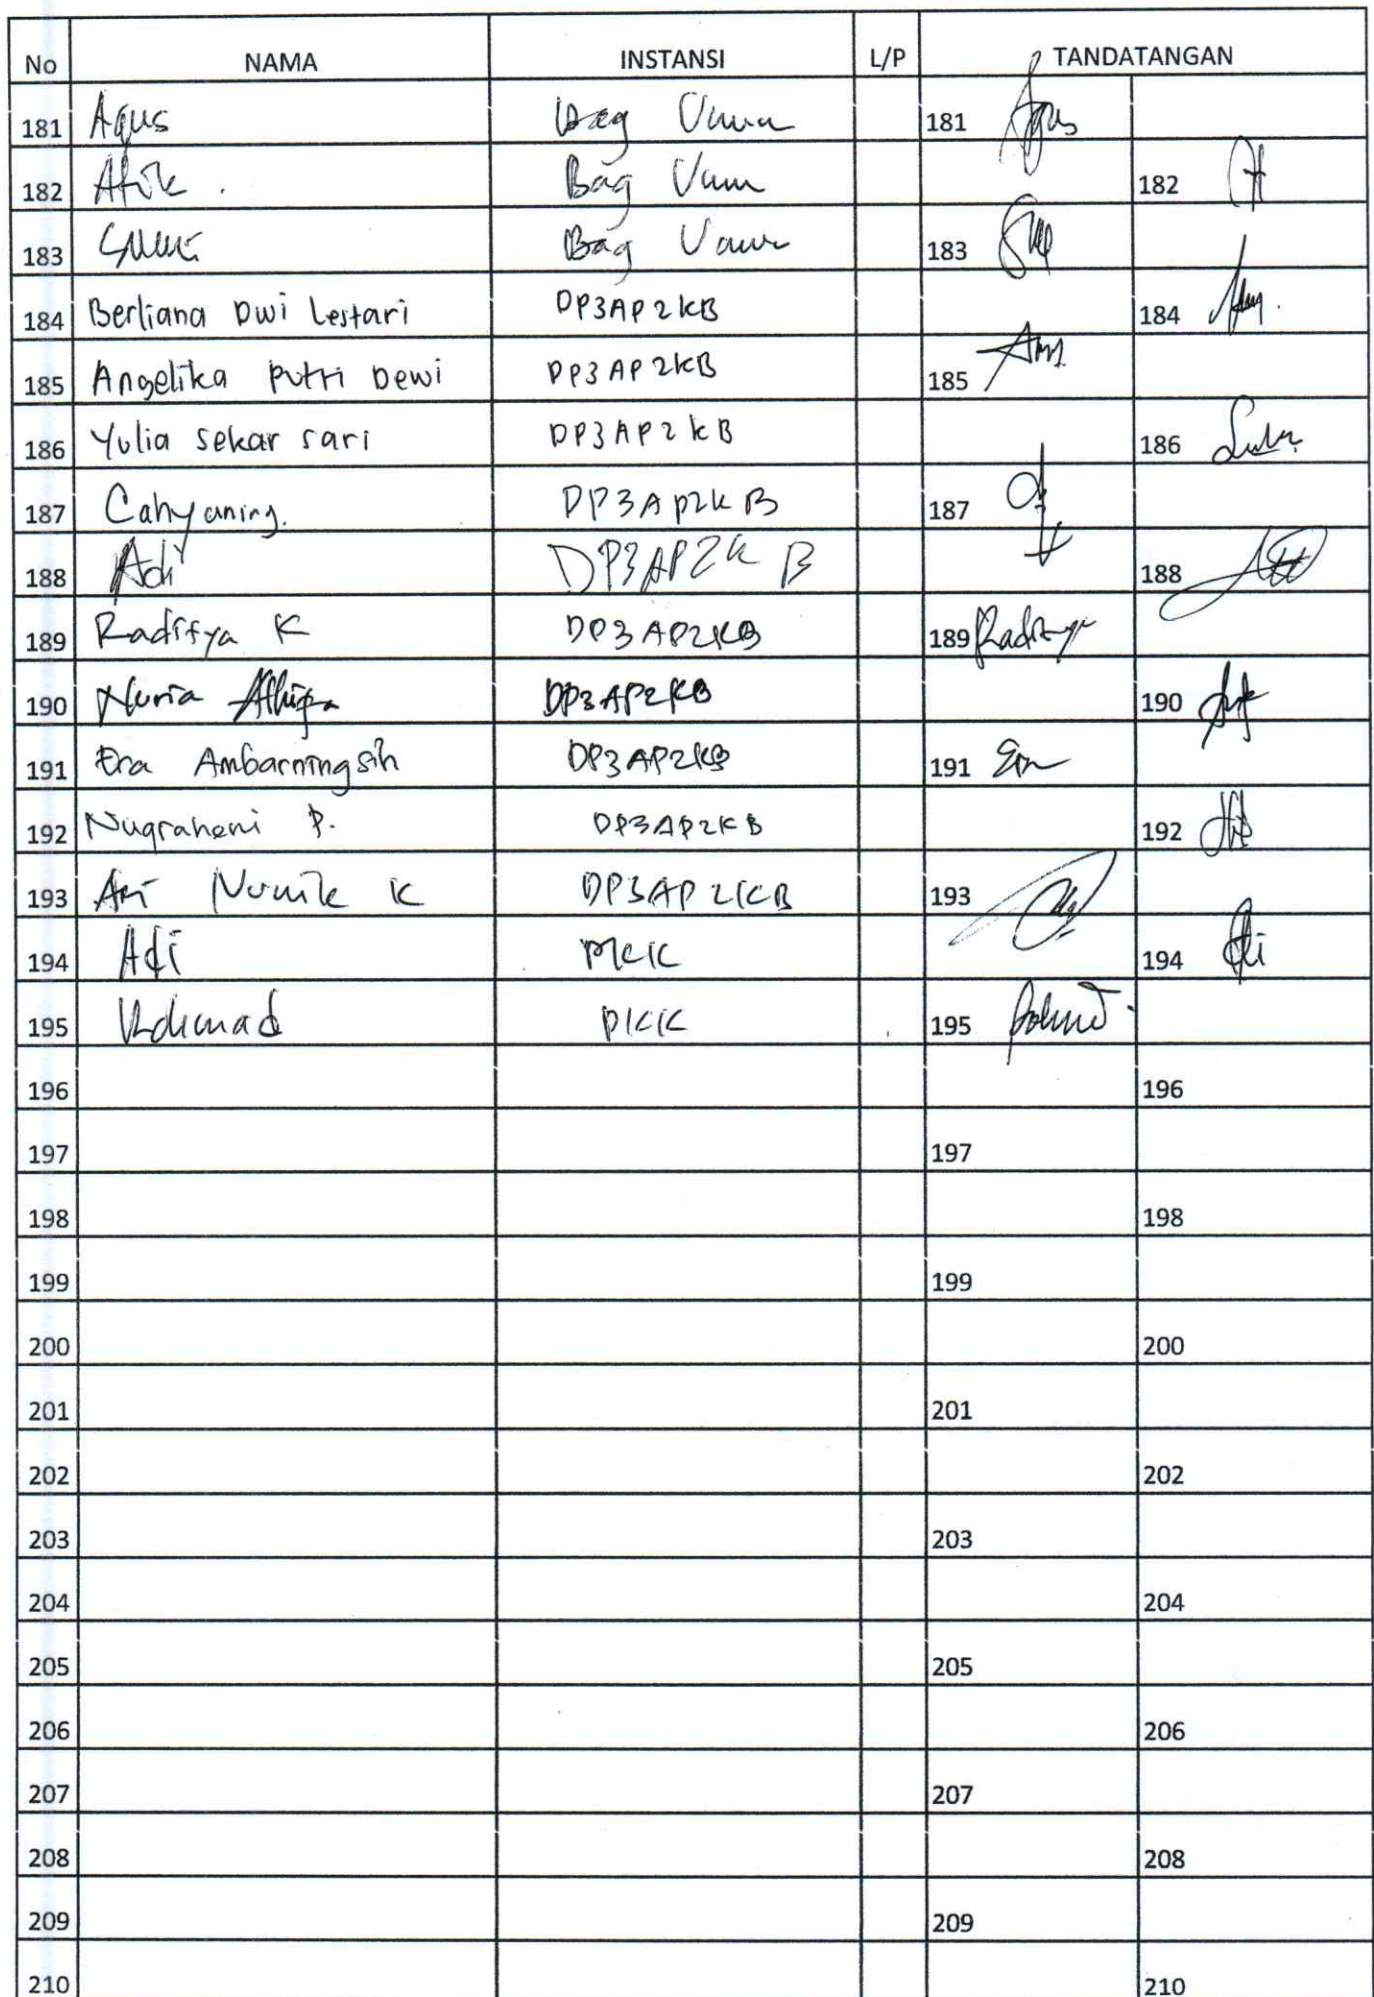 No NAMA INSTANSI L/P TANDATANGAN
181 Agus Bag Umum 181 Agus
182 Bag Umum 182
183 Bag Umum 183
184 Berliana Dwi Lestari DP3AP2KB 184
185 Angelika Putri Dewi DP3AP2KB 185
186 Yulia Sekar Sari DP3AP2KB 186
187 Cahyaning. DP3AP2KB 187
188 Adi DP3AP2KB 188
189 Raditya K DP3AP2KB 189 Raditya
190 Nuria DP3AP2KB 190
191 Era Ambarningsih DP3AP2KB 191
192 Nugraheni P. DP3AP2KB 192
193 Ari K DP3AP2KB 193
194 Adi PKK 194
195 PKK 195
196 196
197 197
198 198
199 199
200 200
201 201
202 202
203 203
204 204
205 205
206 206
207 207
208 208
209 209
210 210